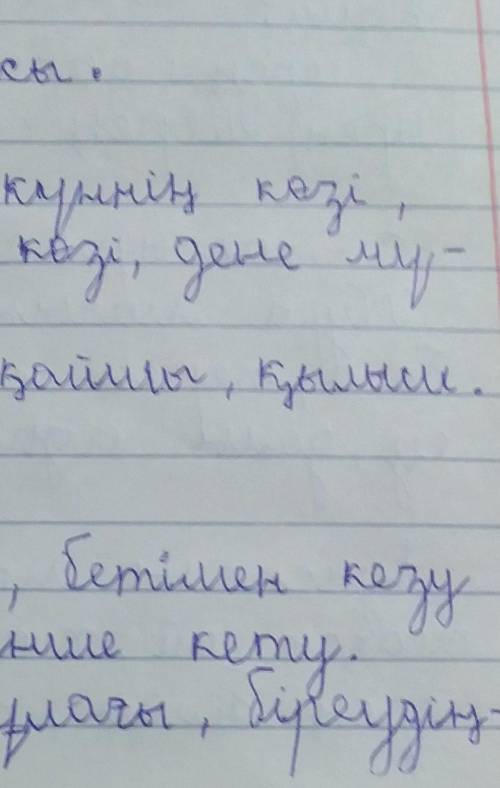 сы.
күннің көзі,
көзі, дене мү-
қайшы, қылыш.
, бетімен кезу
ніше кету.
ұлағы, біреудің-